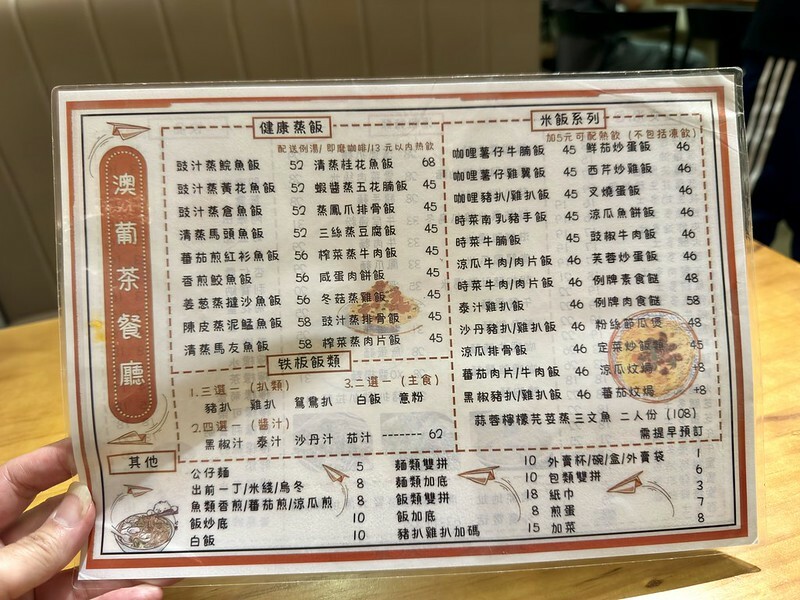 澳葡茶餐廳
健康蒸飯
配送例湯/即磨咖啡/13元以內熱飲
豉汁蒸鯇魚飯 52 清蒸桂花魚飯 68
豉汁蒸黃花魚飯 52 蝦醬蒸五花腩飯 45
豉汁蒸倉魚飯 52 蒸鳳爪排骨飯 45
清蒸馬頭魚飯 52 三絲蒸豆腐飯 45
蕃茄煎紅衫魚飯 56 榨菜蒸牛肉飯 45
香煎鮫魚飯 56 咸蛋肉餅飯 45
姜葱蒸撻沙魚飯 56 冬菇蒸雞飯 45
陳皮蒸泥鯭魚飯 58 豉汁蒸排骨飯 45
清蒸馬友魚飯 58 榨菜蒸肉片飯 45
铁板飯類
1.三選一(扒類) 3.二選一(主食)
豬扒 雞扒 鴛鴦扒 白飯 意粉
2.四選一(醬汁)
黑椒汁 泰汁 沙丹汁 茄汁 ------- 62
米飯系列
加5元可配熱飲(不包括凍飲)
咖哩薯仔牛腩飯 45 鮮茄炒蛋飯 46
咖哩薯仔雞翼飯 45 西芹炒雞飯 46
咖哩豬扒/雞扒飯 45 叉燒蛋飯 46
時菜南乳豬手飯 45 涼瓜魚餅飯 46
時菜牛腩飯 45 豉椒牛肉飯 46
涼瓜牛肉/肉片飯 46 芙蓉炒蛋飯 46
時菜牛肉/肉片飯 46 例牌素食餸 48
泰汁雞扒飯 46 例牌肉食餸 58
沙丹豬扒/雞扒飯 46 粉絲節瓜煲 48
涼瓜排骨飯 46 定菜炒飯類 45
蕃茄肉片/牛肉飯 46 涼瓜炆焗 +8
黑椒豬扒/雞扒飯 46 蕃茄炆焗 +8
蒜蓉檸檬芫荽蒸三文魚 二人份(108)
需提早預訂
其他
公仔麵 5 麵類雙拼 10 外賣杯/碗/盒/外賣袋 1
出前一丁/米綫/烏冬 8 麵類加底 10 包類雙拼 6
魚類香煎/蕃茄煎/涼瓜煎 8 飯類雙拼 18 紙巾 3
飯炒底 10 飯加底 8 煎蛋 7
白飯 10 豬扒雞扒加碼 15 加菜 8